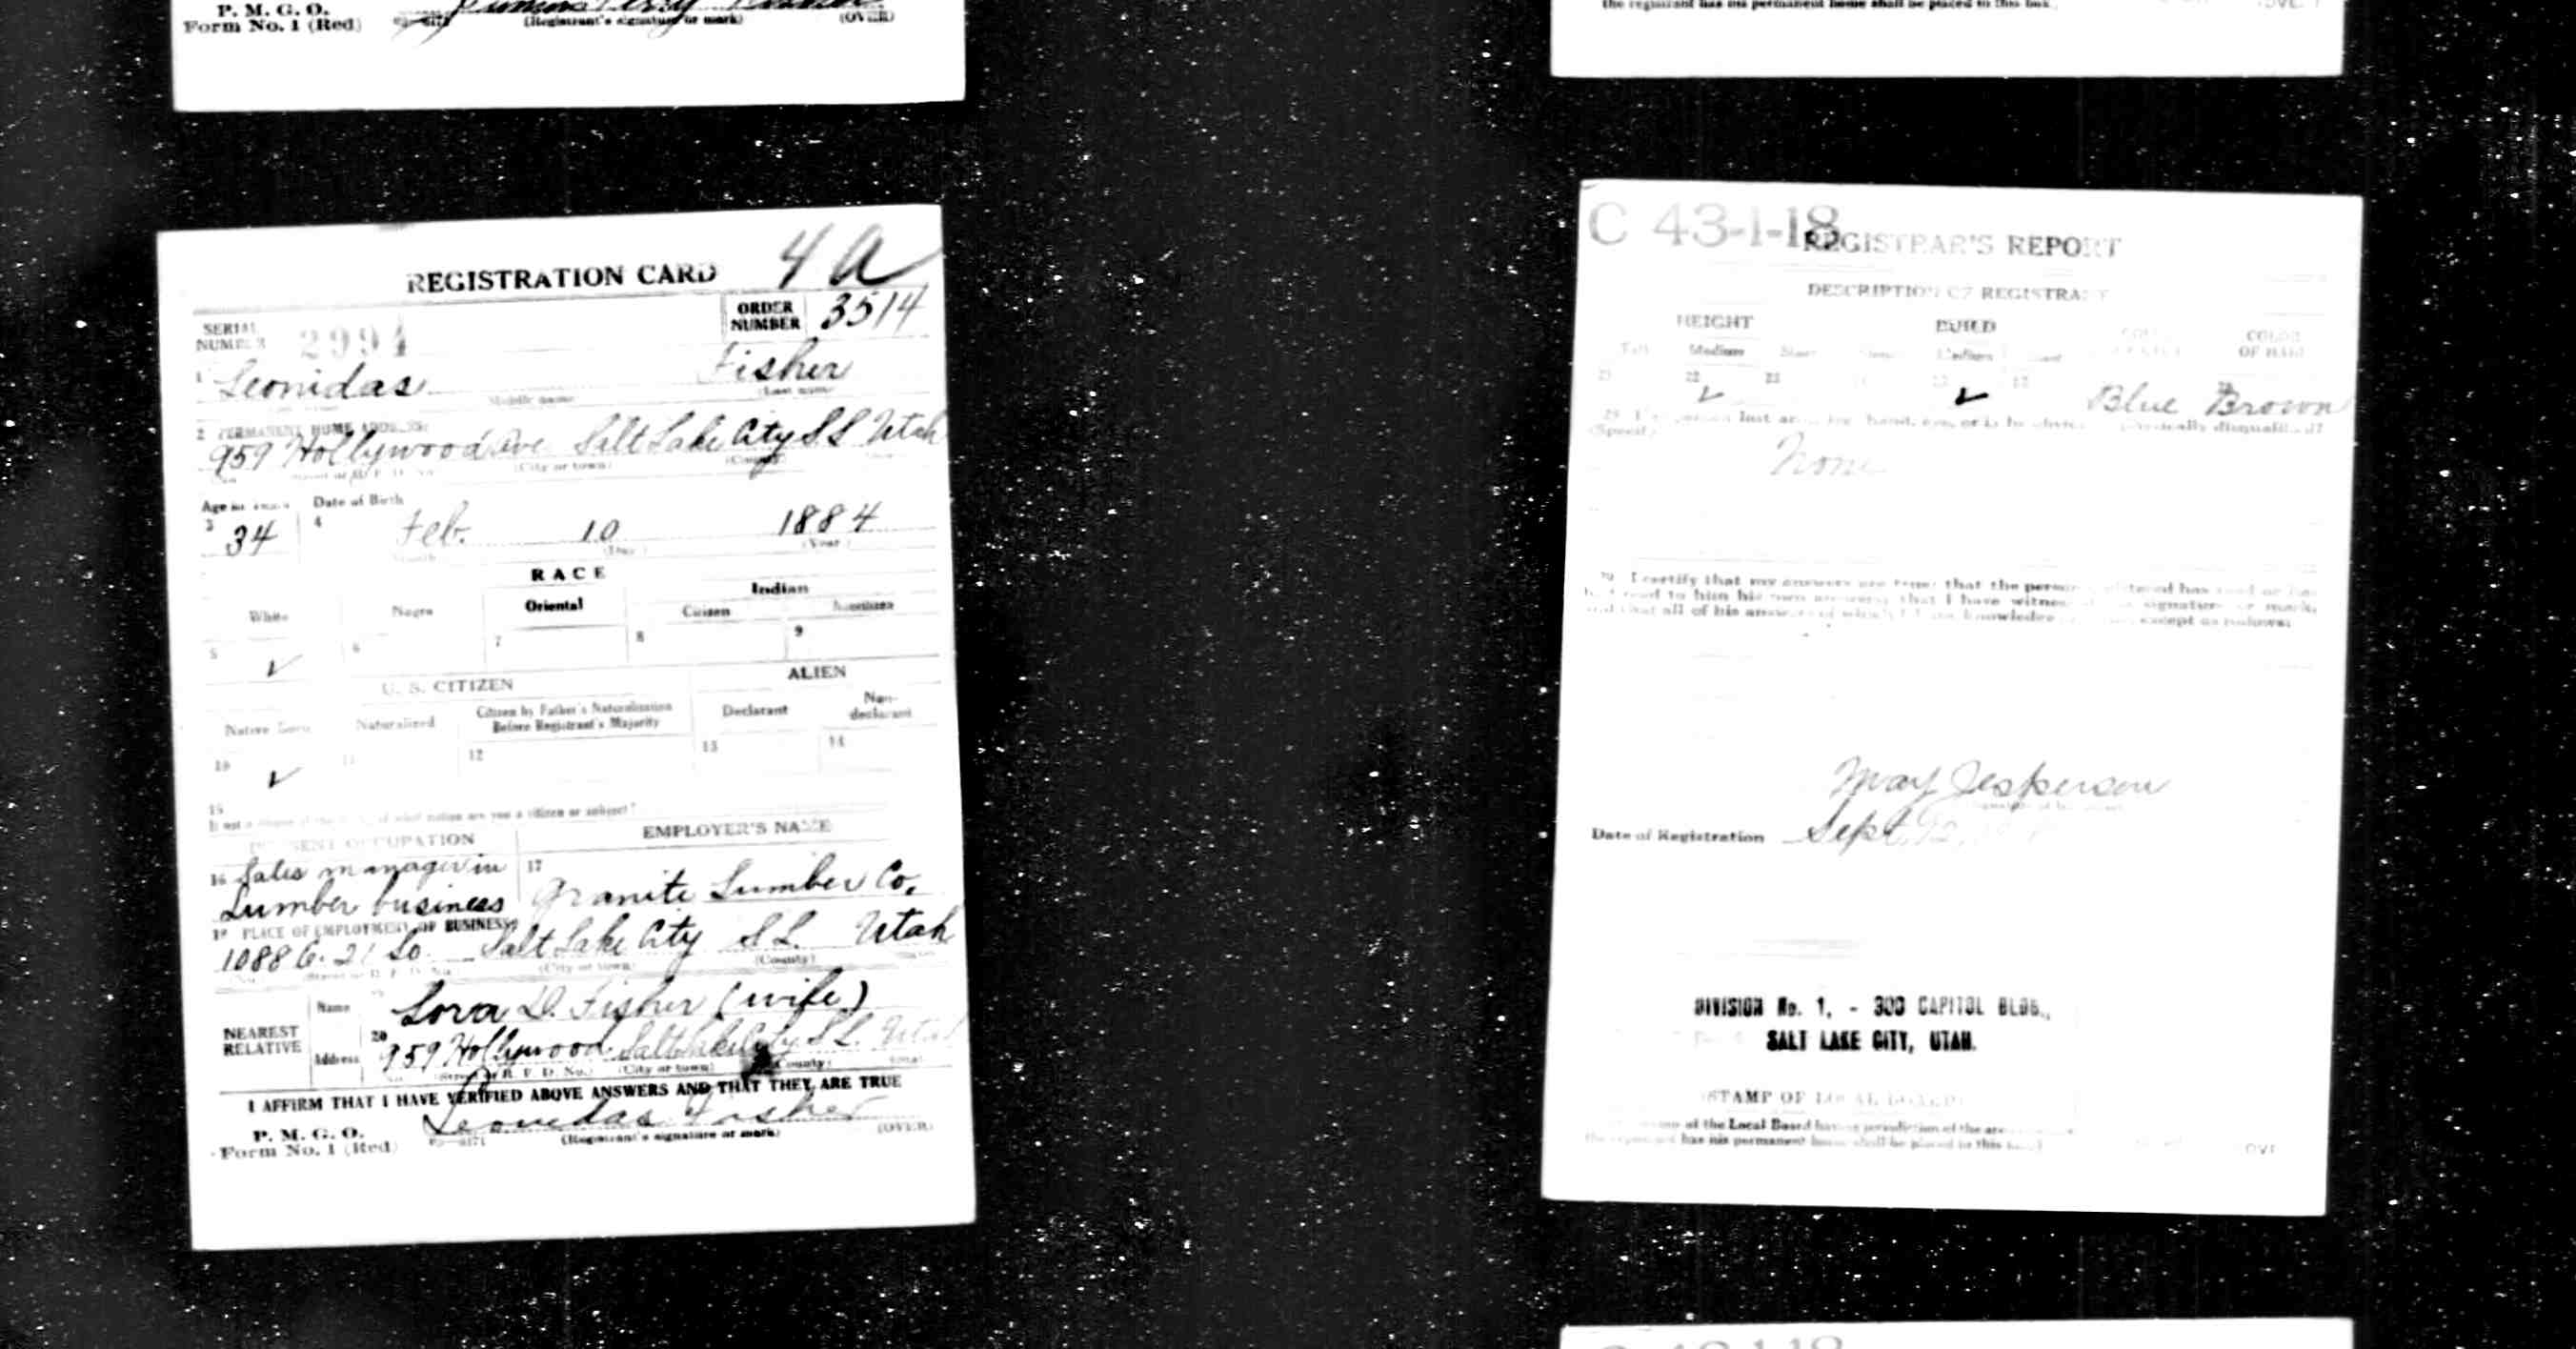 P. M. G. O.
Form No. 1 (Red)
(Registrant's signature or mark)
(OVER)
the registrant has his permanent home shall be placed in this box.
REGISTRATION CARD 4 A
SERIAL NUMBER 2994
ORDER NUMBER 3514
1 Leonidas Fisher
Middle name (Last name)
2 PERMANENT HOME ADDRESS:
959 Hollywood Ave Salt Lake City S L Utah
(City or town) (County)
Age in Years Date of Birth
3 34 4 Feb. 10 1884
Month (Day) (Year)
RACE
White Negro Oriental Indian
Citizen Noncitizen
5 ✓ 6 7 8 9
U. S. CITIZEN ALIEN
Native Born Naturalized Citizen by Father's Naturalization Before Registrant's Majority Declarant Non-declarant
10 ✓ 11 12 13 14
15
of what nation are you a citizen or subject?
PRESENT OCCUPATION EMPLOYER'S NAME
16 Sales manager in 17
Lumber business Granite Lumber Co.
18 PLACE OF EMPLOYMENT OR BUSINESS:
1088 E. 21 So. Salt Lake City S L. Utah
(City or town) (County)
NEAREST RELATIVE
Name Lora D. Fisher (wife)
20
Address 959 Hollywood Salt Lake City S L. Utah
No. (Street or R. F. D. No.) (City or town) (County) (State)
I AFFIRM THAT I HAVE VERIFIED ABOVE ANSWERS AND THAT THEY ARE TRUE
Leonidas Fisher
P. M. G. O.
Form No. 1 (Red)
(Registrant's signature or mark)
(OVER)
C 43-1-18
REGISTRAR'S REPORT
DESCRIPTION OF REGISTRANT
HEIGHT BUILD COLOR OF HAIR
Tall Medium Medium
21 22 ✓ 23 ✓ Blue Brown
29 person lost arm, leg, hand, eye, or is he physically disqualified?
(Specify)
None
30 I certify that my answers are true; that the person registered has read or has
had read to him his own answers; that I have witnessed his signature or mark,
and that all of his answers of which I have knowledge except as follows:
May Jesperson
Date of Registration Sept. 12,
DIVISION No. 1, - 300 CAPITOL BLDG.,
SALT LAKE CITY, UTAH.
(STAMP OF LOCAL BOARD)
of the Local Board having jurisdiction of the area
the registrant has his permanent home shall be placed in this box.)